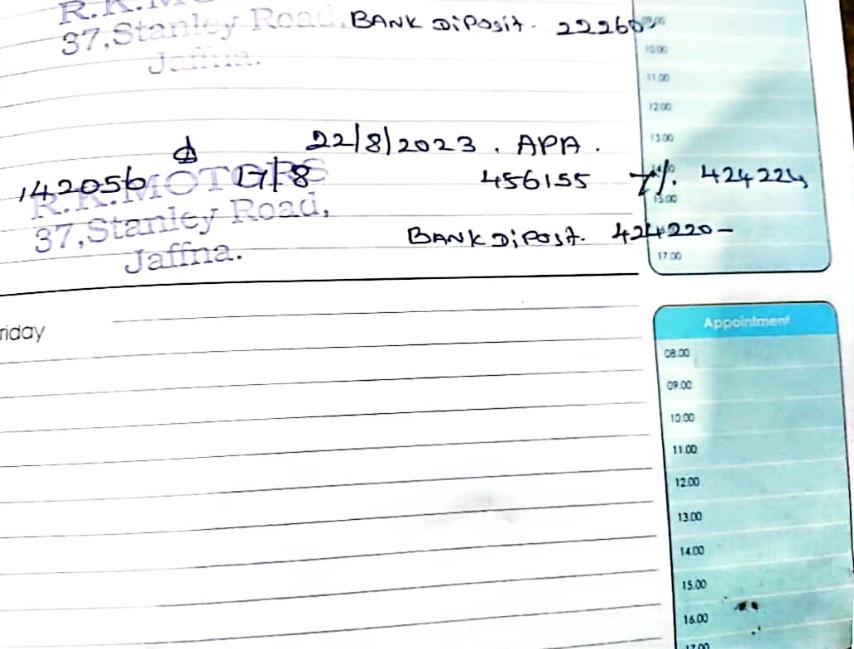 R.K.MO
37,Stanley Road, BANK DiPosit. 22260
Jaffna.
09.00
10.00
11.00
12.00
22/8/2023 . APA .
13.00
142056 17/8 456155 7%. 424224
R.K.MOTORS
15.00
37,Stanley Road,
BANK DiPosit. 424220-
Jaffna.
17.00
riday
Appointment
08.00
09.00
10.00
11.00
12.00
13.00
14.00
15.00
16.00
17.00